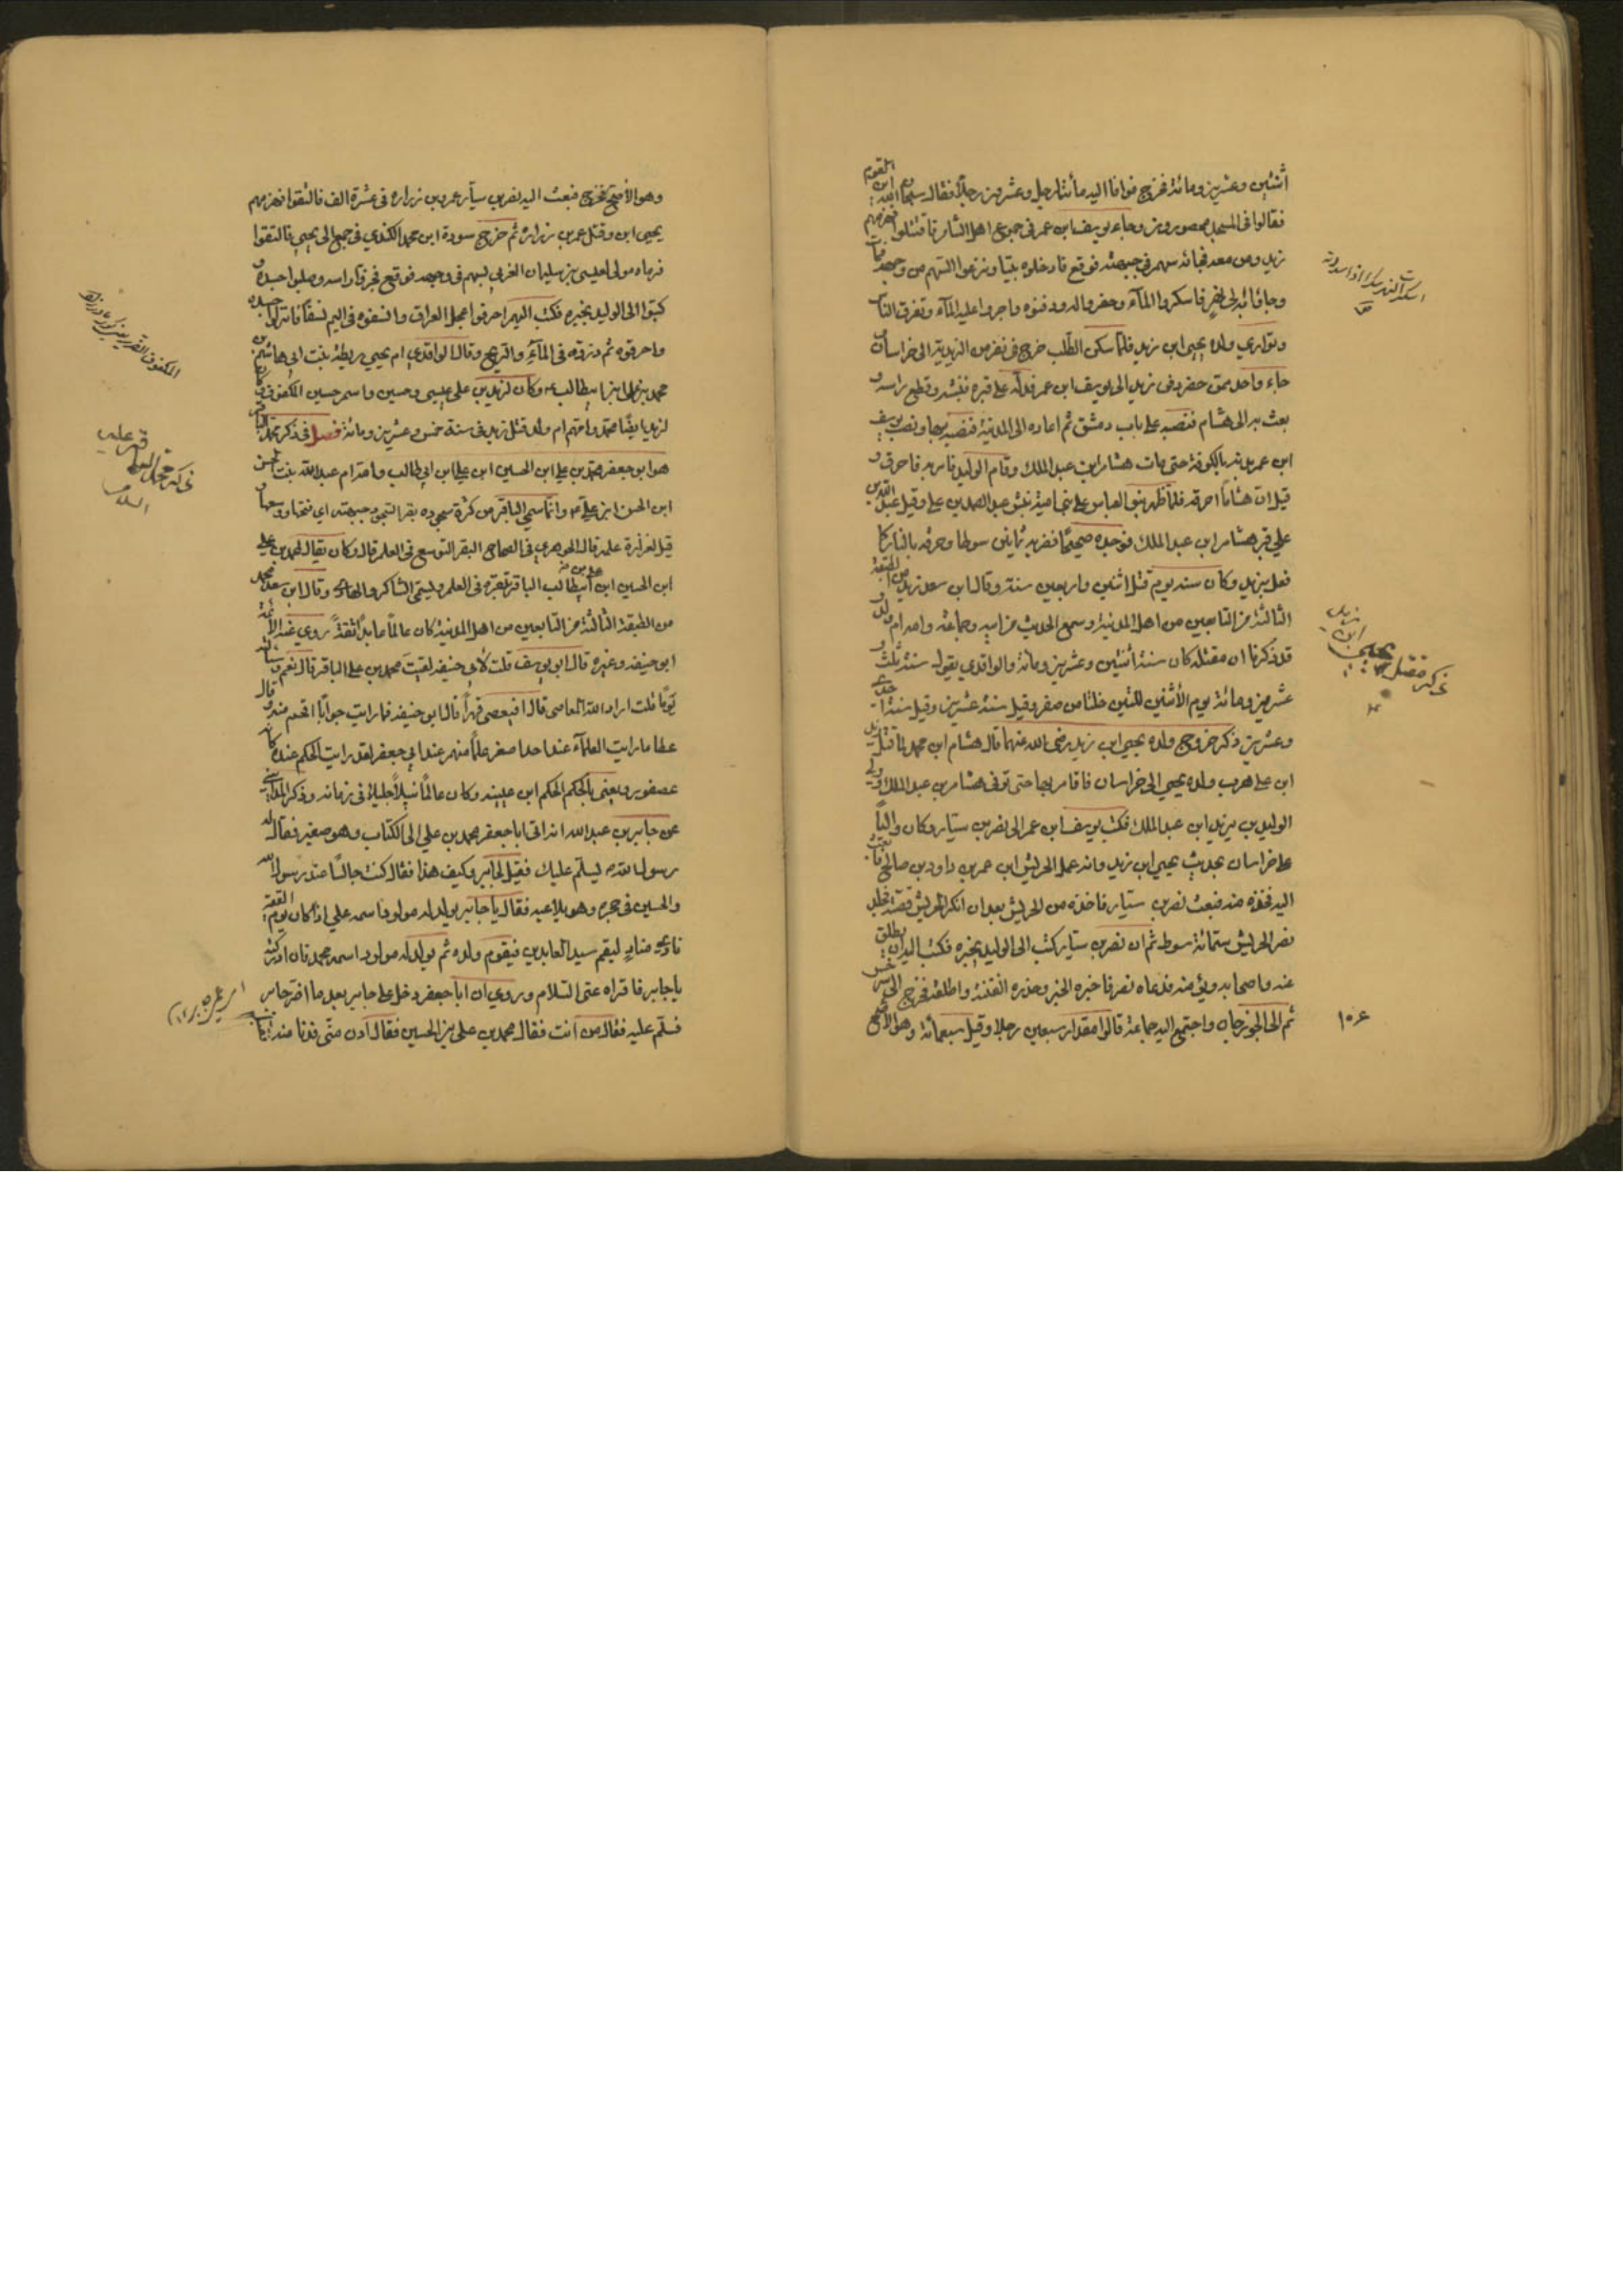 اثنتين وعشرين ومائة فخرج فوافا اليه مأئتا رجل وعشرون رجلاً فقال سبحان الله اين القوم
فقالوا فى المسجد محصورون وجاء يوسف ابن عمر فى جموع اهل الشام فاقتتلوا فهزمهم
زيد ومن معه فجائه سهم فى جبهته فوقع فادخلوه بيتا ونزعوا السهم من وجهه فمات
وجاؤا به الى نهر فاسكروا المآء وحفروا له ودفنوه واجروا عليه المآء وتفرق الناس
وتوارى ولده يحيى ابن زيد فلما سكن الطلب خرج فى نفر من الزيدية الى خراسان و
جاء واحد ممن حضر دفن زيد الى يوسف ابن عمر فدله على قبره فنبشه وقطع راسه و
بعث به الى هشام فنصبه على باب دمشق ثم اعاده الى المدينة فنصبه بها ونصب يوسف
ابن عمر بدنه بالكوفة حتى مات هشام ابن عبد الملك وقام الوليد فامر به فاحرق و
قيل ان هشاماً احرقه فلما ظهر بنو العباس على بنى امية نبش عبد الصمد بن على وقيل عبد الله بن
على قبر هشام ابن عبد الملك فوجده صحيحًا فضربه ثمانين سوطا وحرقه بالنار كما
فعل بزيد وكان سنه يوم قتل اثنين واربعين سنة وقال ابن سعد زيد من الطبقة
الثالثة من التابعين من اهل المدينة وسمع الحديث من ابيه وجماعة وامه ام ولد و
قد ذكرنا ان مقتله كان سنة أثنتين وعشرين ومائة والواقدي يقول سنة ثلث و
عشرين ومائة يوم الأثنين لليلتين خلتا من صفر وقيل سنة عشرين وقيل سنة احدى
وعشرين ذكر خروج ولده يحيى ابن زيد رضى الله عنهما قال هشام ابن محمد لما قتل زيد
ابن على هرب ولده يحيى الى خراسان فاقام بها حتى توفى هشام بن عبد الملك وولى
الوليد بن يزيد ابن عبد الملك فكتب يوسف ابن عمر الى نصر بن سيار وكان والياً
على خراسان بحديث يحيى ابن زيد وانه عند الحريش ابن عمر بن داود بن صالح فابعث
اليه فخذه منه فبعث نصر بن سيار فاخذه من الحريش بعد ان انكر الحريش قصته فجلد
نصر الحريش ستمائة سوط ثم ان نصر بن سيار كتب الى الوليد يخبره فكتب اليه ان يطلق
عنه واصحابه فدعاه نصر فاخبره الخبر وحذره الفتنة واطلقه فخرج الى سرخس
ثم الى الجوزجان واجتمع اليه جماعة قالوا مقدار سبعين رجلا وقيل سبعمائة وهو الأصح
ذكر مقتل يحيى ابن زيد
وهو الأصح فخرج فبعث اليه نصر بن سيار عمرو بن زراره فى عشرة الف فالتقوا فهزمهم
يحيى ابن وقتل عمر بن زراره ثم خرج سودة ابن محمد الكندي فى جمع الى يحيى فالتقوا
فرماه مولى لعيسى بن سليمان الغزى بسهم فى وجهه فوقع فجز قاد راسه وصلبوا جسده و
كتبوا الى الوليد يخبره فكتب اليهم احرقوا عجل العراق وانسفوه فى اليم نسفًا فانزلوا جسده
واحرقوه ثم ذروه فى المآء والريح وقال الواقدى ام يحيى ريطة بنت ابى هاشم بن
محمد بن على ابن ابيطالب وكان لزيد بن على عيسى وحسين واسم حسين المكفوف و
لزيد ايضًا محمد وامهم ام ولد قتل زيد فى سنة خمس وعشرين ومائة فصل فى ذكر محمد الباقر
هو ابو جعفر محمد بن على ابن الحسين ابن على ابن ابى طالب وامه ام عبد الله بنت الحسن
ابن الحسن ابن على وانما سمى الباقر من كثرة سجوده بقر السجود جبهته اى فتحها ووسعها و
قيل لغزارة علمه قال الجوهرى فى الصحاح البقر التوسع فى العلم قال وكان يقال لمحمد بن على
ابن الحسين ابن على بن ابيطالب الباقر لتبقره فى العلم ويسمى الشاكر والهادى وقال ابن سعد محمد
من الطبقة الثالثة من التابعين من اهل المدينة كان عالماً عابداً ثقةً روى عنه الأئمة
ابو حنيفة وغيره قال ابو يوسف قلت لأبى حنيفة لقيت محمد بن على الباقر قال نعم وسألته
يومًا فقلت اراد الله المعاصى فقال افيعصى قهراً قال ابو حنيفة فما رايت جواباً افحم منه وقال
عطا ما رايت العلمآء عند احد اصغر علمًا منهم عند ابى جعفر لقد رايت الحكم عنده كانه
عصفور ويعنى بالحكم الحكم ابن عيينه وكان عالمًا نبيلاً جليلا فى زمانه وذكر المداينى
عن جابر بن عبد الله انه اتى ابا جعفر محمد بن على الى الكتاب وهو صغير فقال له
رسول الله يسلم عليك فقيل لجابر وكيف هذا فقال كنت جالسًا عند رسول الله
والحسين فى حجره وهو يلاعبه فقال يا جابر يولد له مولود اسمه على اذا كان يوم القيمة
نادى مناد ليقم سيد العابدين فيقوم ولده ثم يولد له مولود اسمه محمد فان ادركته
يا جابر فاقراه عنى السلام وروى ان ابا جعفر دخل على جابر بعد ما اضر جابر
فسلم عليه فقال من انت فقال محمد بن على بن الحسين فقال ادن منى فدنا منه